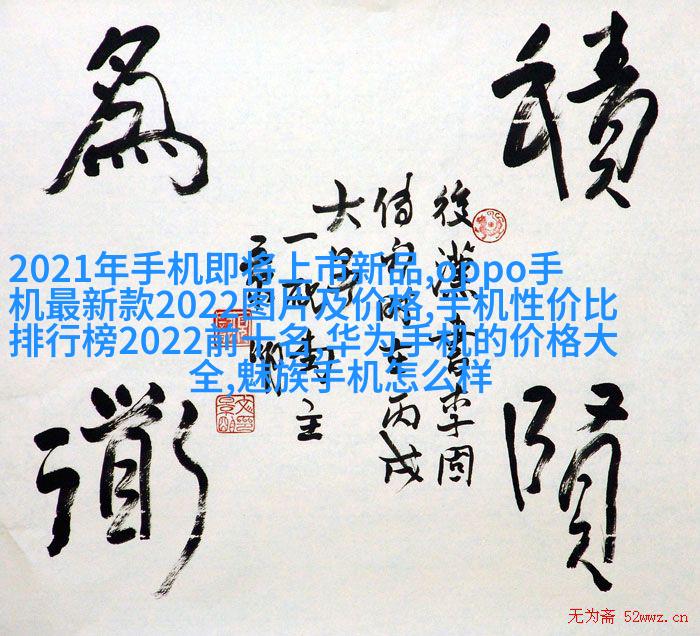 積賢
為衟
後漢書李固
2021年手机即将上市新品,oppo手
机最新款2022图片及价格,手机性价比
排行榜2022前十名,华为手机的价格大
全,魅族手机怎么样
无为斋 52wwz.cn